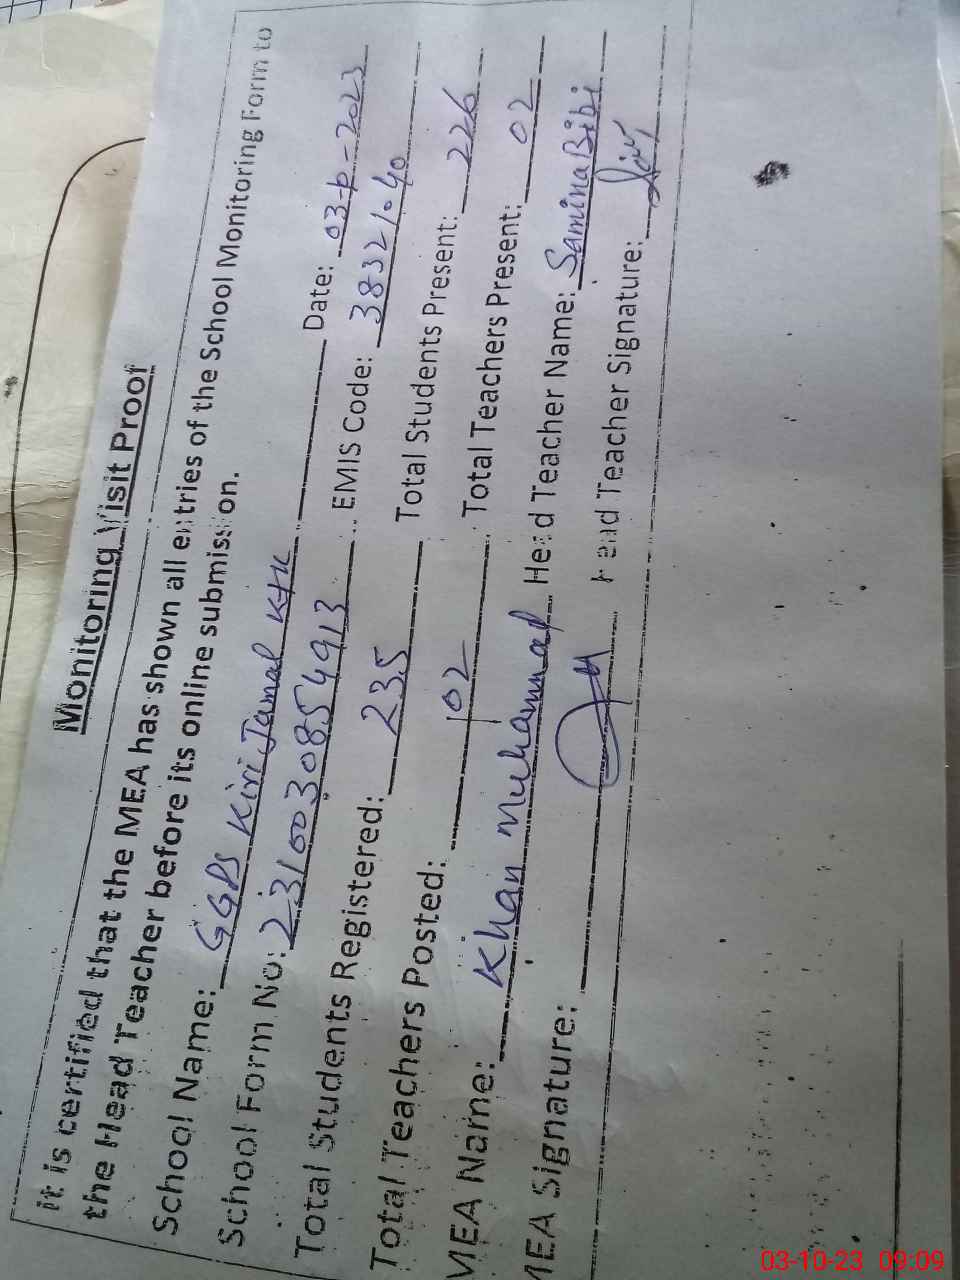 Monitoring Visit Proof
it is certified that the MEA has shown all entries of the School Monitoring Form to
the Head Teacher before its online submission.
School Name: GGPS Kiri Jamal Date: 03-10-2023
School Form No: 231003085 4913 EMIS Code: 38321040
Total Students Registered: 235 Total Students Present: 226
Total Teachers Posted: 02 Total Teachers Present: 02
MEA Name: Khan Muhammad Head Teacher Name: Samina Bibi
MEA Signature: Head Teacher Signature:
03-10-23 09:09